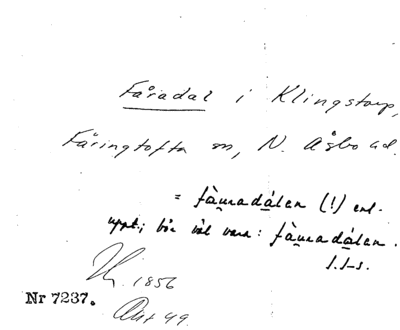 Fåradal i Klingstorp,
Färingtofta sn, N. Åsbo hd.
= fàɱradálen (!) enl.
uppt.; bör väl vara: fàɱradálen.
I.I-s.
1856
Nr 7237.
Akt 49